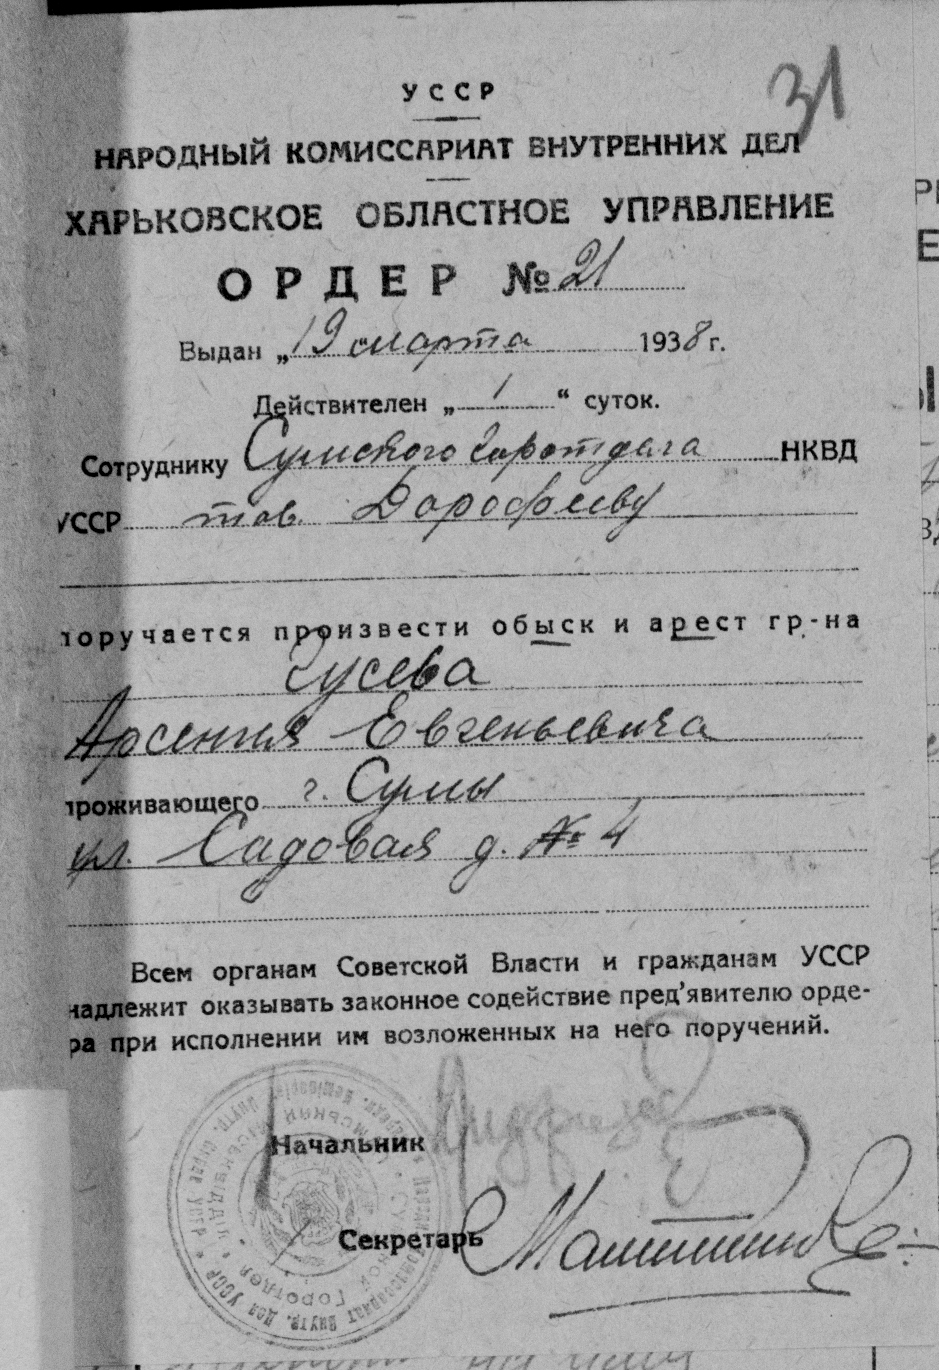 31
УССР
НАРОДНЫЙ КОМИССАРИАТ ВНУТРЕННИХ ДЕЛ
ХАРЬКОВСКОЕ ОБЛАСТНОЕ УПРАВЛЕНИЕ
ОРДЕР № 21
Выдан „19" марта 1938 г.
Действителен „1“ суток.
Сотруднику Сумского Горотдела НКВД
УССР тов. Дорофееву
поручается произвести обыск и арест гр-на
Гусева
Арсения Евгеньевича
проживающего г. Сумы
ул. Садовая д. № 4
Всем органам Советской Власти и гражданам УССР
надлежит оказывать законное содействие пред'явителю орде-
ра при исполнении им возложенных на него поручений.
Начальник
Секретарь